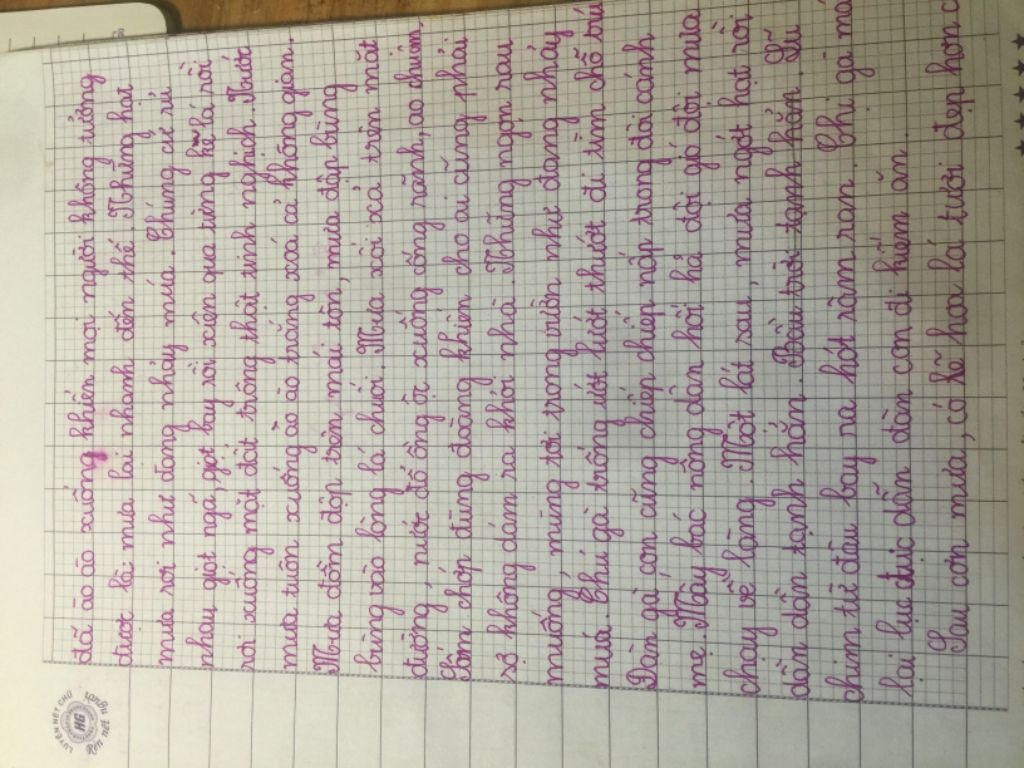 đã ào ào xuống khiến mọi người không tưởng
được là mưa lại nhanh đến thế. Những hạt
mưa rơi như đang nhảy múa. Chúng cứ rủ
nhau giọt ngã, giọt bay rồi xiên qua từng kẽ lá rồi
rơi xuống mặt đất trông thật tinh nghịch. Nước
mưa tuôn xuống ào ào trắng xoá cả không gian.
Mưa dồn dập trên mái tôn, mưa đập bùng
bùng vào lòng lá chuối. Mưa xối xả trên mặt
đường, nước đổ ồng ộc xuống cống rãnh, ao chuôm.
Sấm chớp đùng đoàng khiến cho ai cũng phải
sợ không dám ra khỏi nhà. Những ngọn rau
muống mùng tơi trong vườn như đang nhảy
múa. Chú gà trống ướt lướt thướt đi tìm chỗ trú
Đàn gà con cũng chiêm chiếp nấp trong đôi cánh
mẹ. Mấy bác nông dân hối hả đội gió đội mưa
chạy về làng. Một lát sau, mưa ngớt hạt rồi
dần dần tạnh hẳn. Bầu trời tạnh hẳn. Lũ
chim từ đâu bay ra hót râm ran. Chị gà má
lại lục đục dẫn đàn con đi kiếm ăn.
Sau cơn mưa, có lẽ hoa lá tươi đẹp hơn c
LUYỆN NÉT CHỮ
Rèn nết người
HG